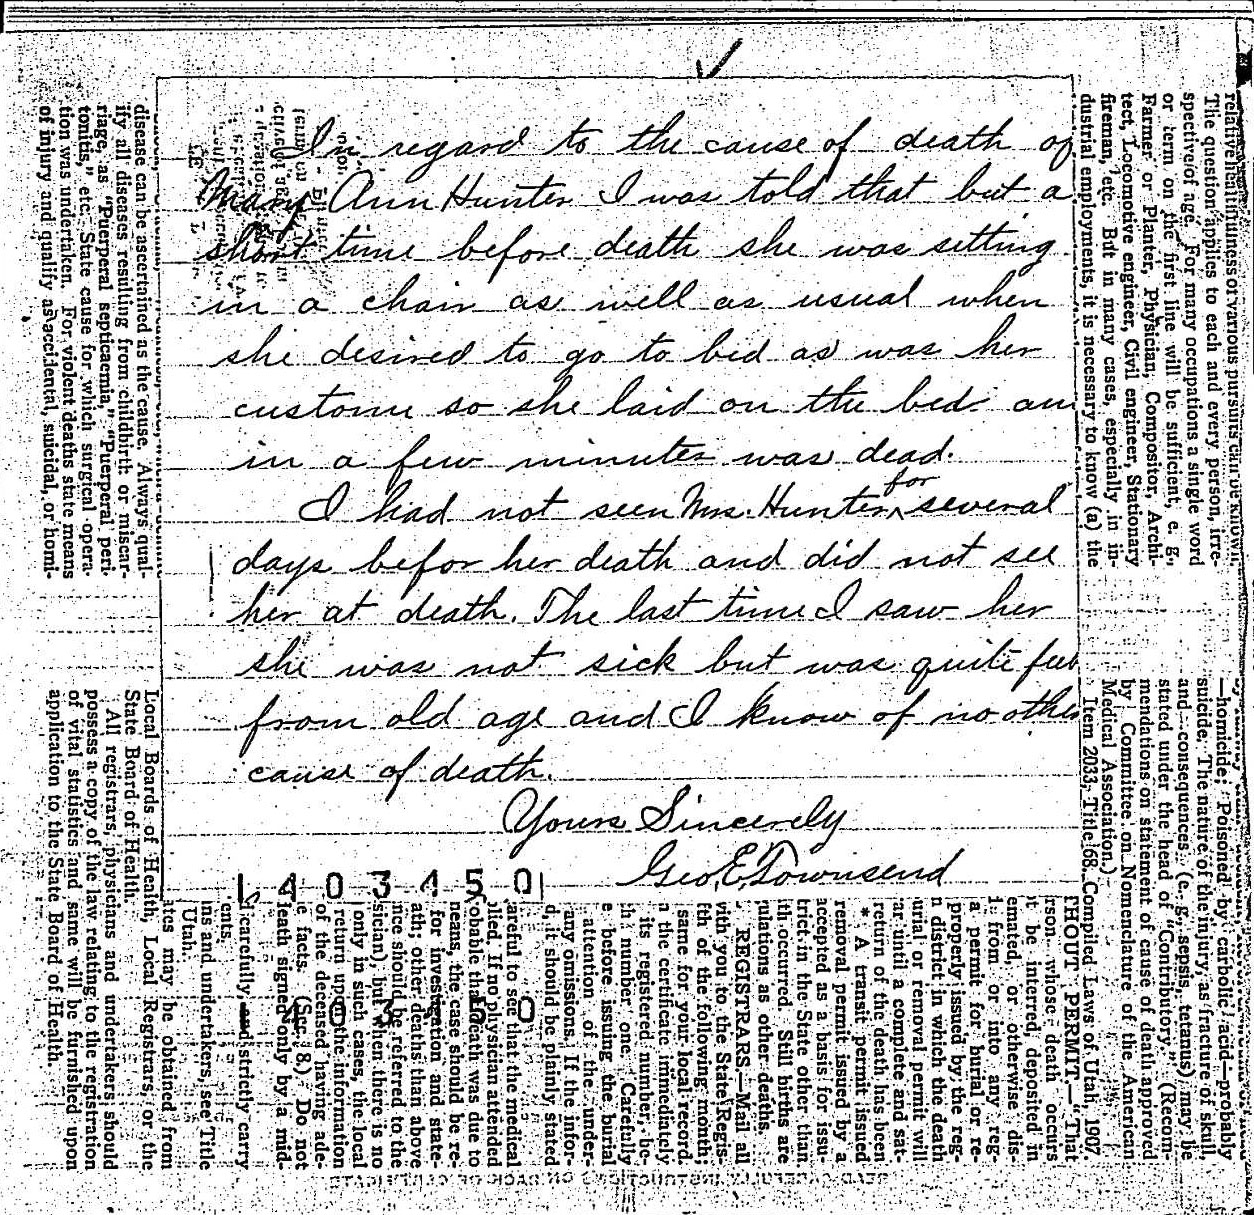 In regard to the cause of death of
Mary Ann Hunter I was told that but a
short time before death she was sitting
in a chair as well as usual when
she desired to go to bed as was her
custome so she laid on the bed an
in a few minutes was dead.
I had not seen Mrs. Hunter for several
days befor her death and did not see
her at death. The last time I saw her
she was not sick but was quite feeb
from old age and I know of no other
cause of death.
Yours Sincerely
Geo. E. Townsend
403450
relative healthfulness of various pursuits can be known.
The question applies to each and every person, irre-
spective of age. For many occupations a single word
or term on the first line will be sufficient, e. g.,
Farmer or Planter, Physician, Compositor, Archi-
tect, Locomotive engineer, Civil engineer, Stationary
fireman, etc. But in many cases, especially in in-
dustrial employments, it is necessary to know (a) the
—homicide; Poisoned by carbolic acid—probably
suicide. The nature of the injury, as fracture of skull,
and consequences (e. g., sepsis, tetanus) may be
stated under the head of "Contributory." (Recom-
mendations on statement of cause of death approved
by Committee on Nomenclature of the American
Medical Association.)
Item 2033, Title 68, Compiled Laws of Utah, 1907
THOUT PERMIT.—"That
rson whose death occurs
t be interred, deposited in
emated, or otherwise dis-
from or into any reg-
a permit for burial or re-
properly issued by the reg-
n district in which the death
urial or removal permit will
ar until a complete and sat-
return of the death has been
* A transit permit issued
removal permit issued by a
accepted as a basis for issu-
trict in the State other than
ith occurred. Still births are
ulations as other deaths.
REGISTRARS.—Mail all
vith you to the State Regis-
fth of the following month;
same for your local record.
n the certificate immediately
its registered number, be-
h number one. Carefully
e before issuing the burial
attention of the under-
any omissions. If the infor-
d, it should be plainly stated
areful to see that the medical
plied. If no physician attended
obable that death was due to
neans, the case should be re-
for investigation and state-
ath; other deaths than above
nce should be referred to the
sician), but when there is no
only in such cases, the local
return upon the information
of the deceased having ade-
e facts. (Sec. 8.) Do not
leath signed only by a mid-
carefully and strictly carry
ents.
ms and undertakers, see Title
Utah.
tes may be obtained from
Local Boards of Health, Local Registrars, or the
State Board of Health.
All registrars, physicians and undertakers should
possess a copy of the law relating to the registration
of vital statistics and same will be furnished upon
application to the State Board of Health.
disease can be ascertained as the cause. Always qual-
ify all diseases resulting from childbirth or miscar-
riage, as "Puerperal septicaemia," "Puerperal peri-
tonitis," etc. State cause for which surgical opera-
tion was undertaken. For violent deaths state means
of injury and qualify as accidental, suicidal, or homi-